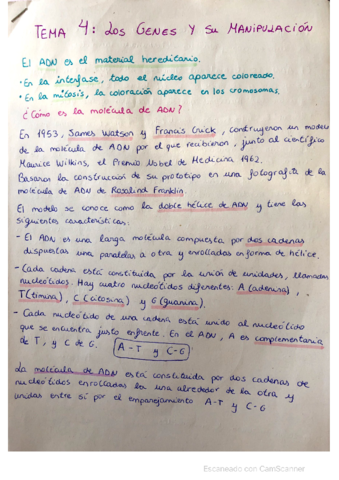 TEMA 4: LOS GENES Y SU MANIPULACIÓN
El ADN es el material hereditario.
· En la interfase, todo el núcleo aparece coloreado.
· En la mitosis, la coloración aparece en los cromosomas.
¿Cómo es la molécula de ADN?
En 1953, James Watson y Francis Crick, construyeron un modelo
de la molécula de ADN por el que recibieron, junto al científico
Maurice Wilkins, el Premio Nobel de Medicina 1962.
Basaron la construcción de su prototipo en una fotografía de la
molécula de ADN de Rosalind Franklin.
El modelo se conoce como la doble hélice de ADN y tiene las
siguientes características:
- El ADN es una larga molécula compuesta por dos cadenas
dispuestas una paralelas a otra y enrolladas en forma de hélice.
- Cada cadena está constituida por la unión de unidades, llamadas
nucleótidos. Hay cuatro nucleótidos diferentes: A (adenina), ,
T(timina), C (citosina) y G (Guanina).
- Cada nucleótido de una cadena está unido al nucleótido
que se encuentra justo enfrente. En el ADN, A es complementaria
de T, y C de G. A-T y C-G
La molécula de ADN está constituida por dos cadenas de
nucleótidos enrolladas la una alrededor de la otra y
unidas entre sí por el emparejamiento A-T y C-G
Escaneado con CamScanner